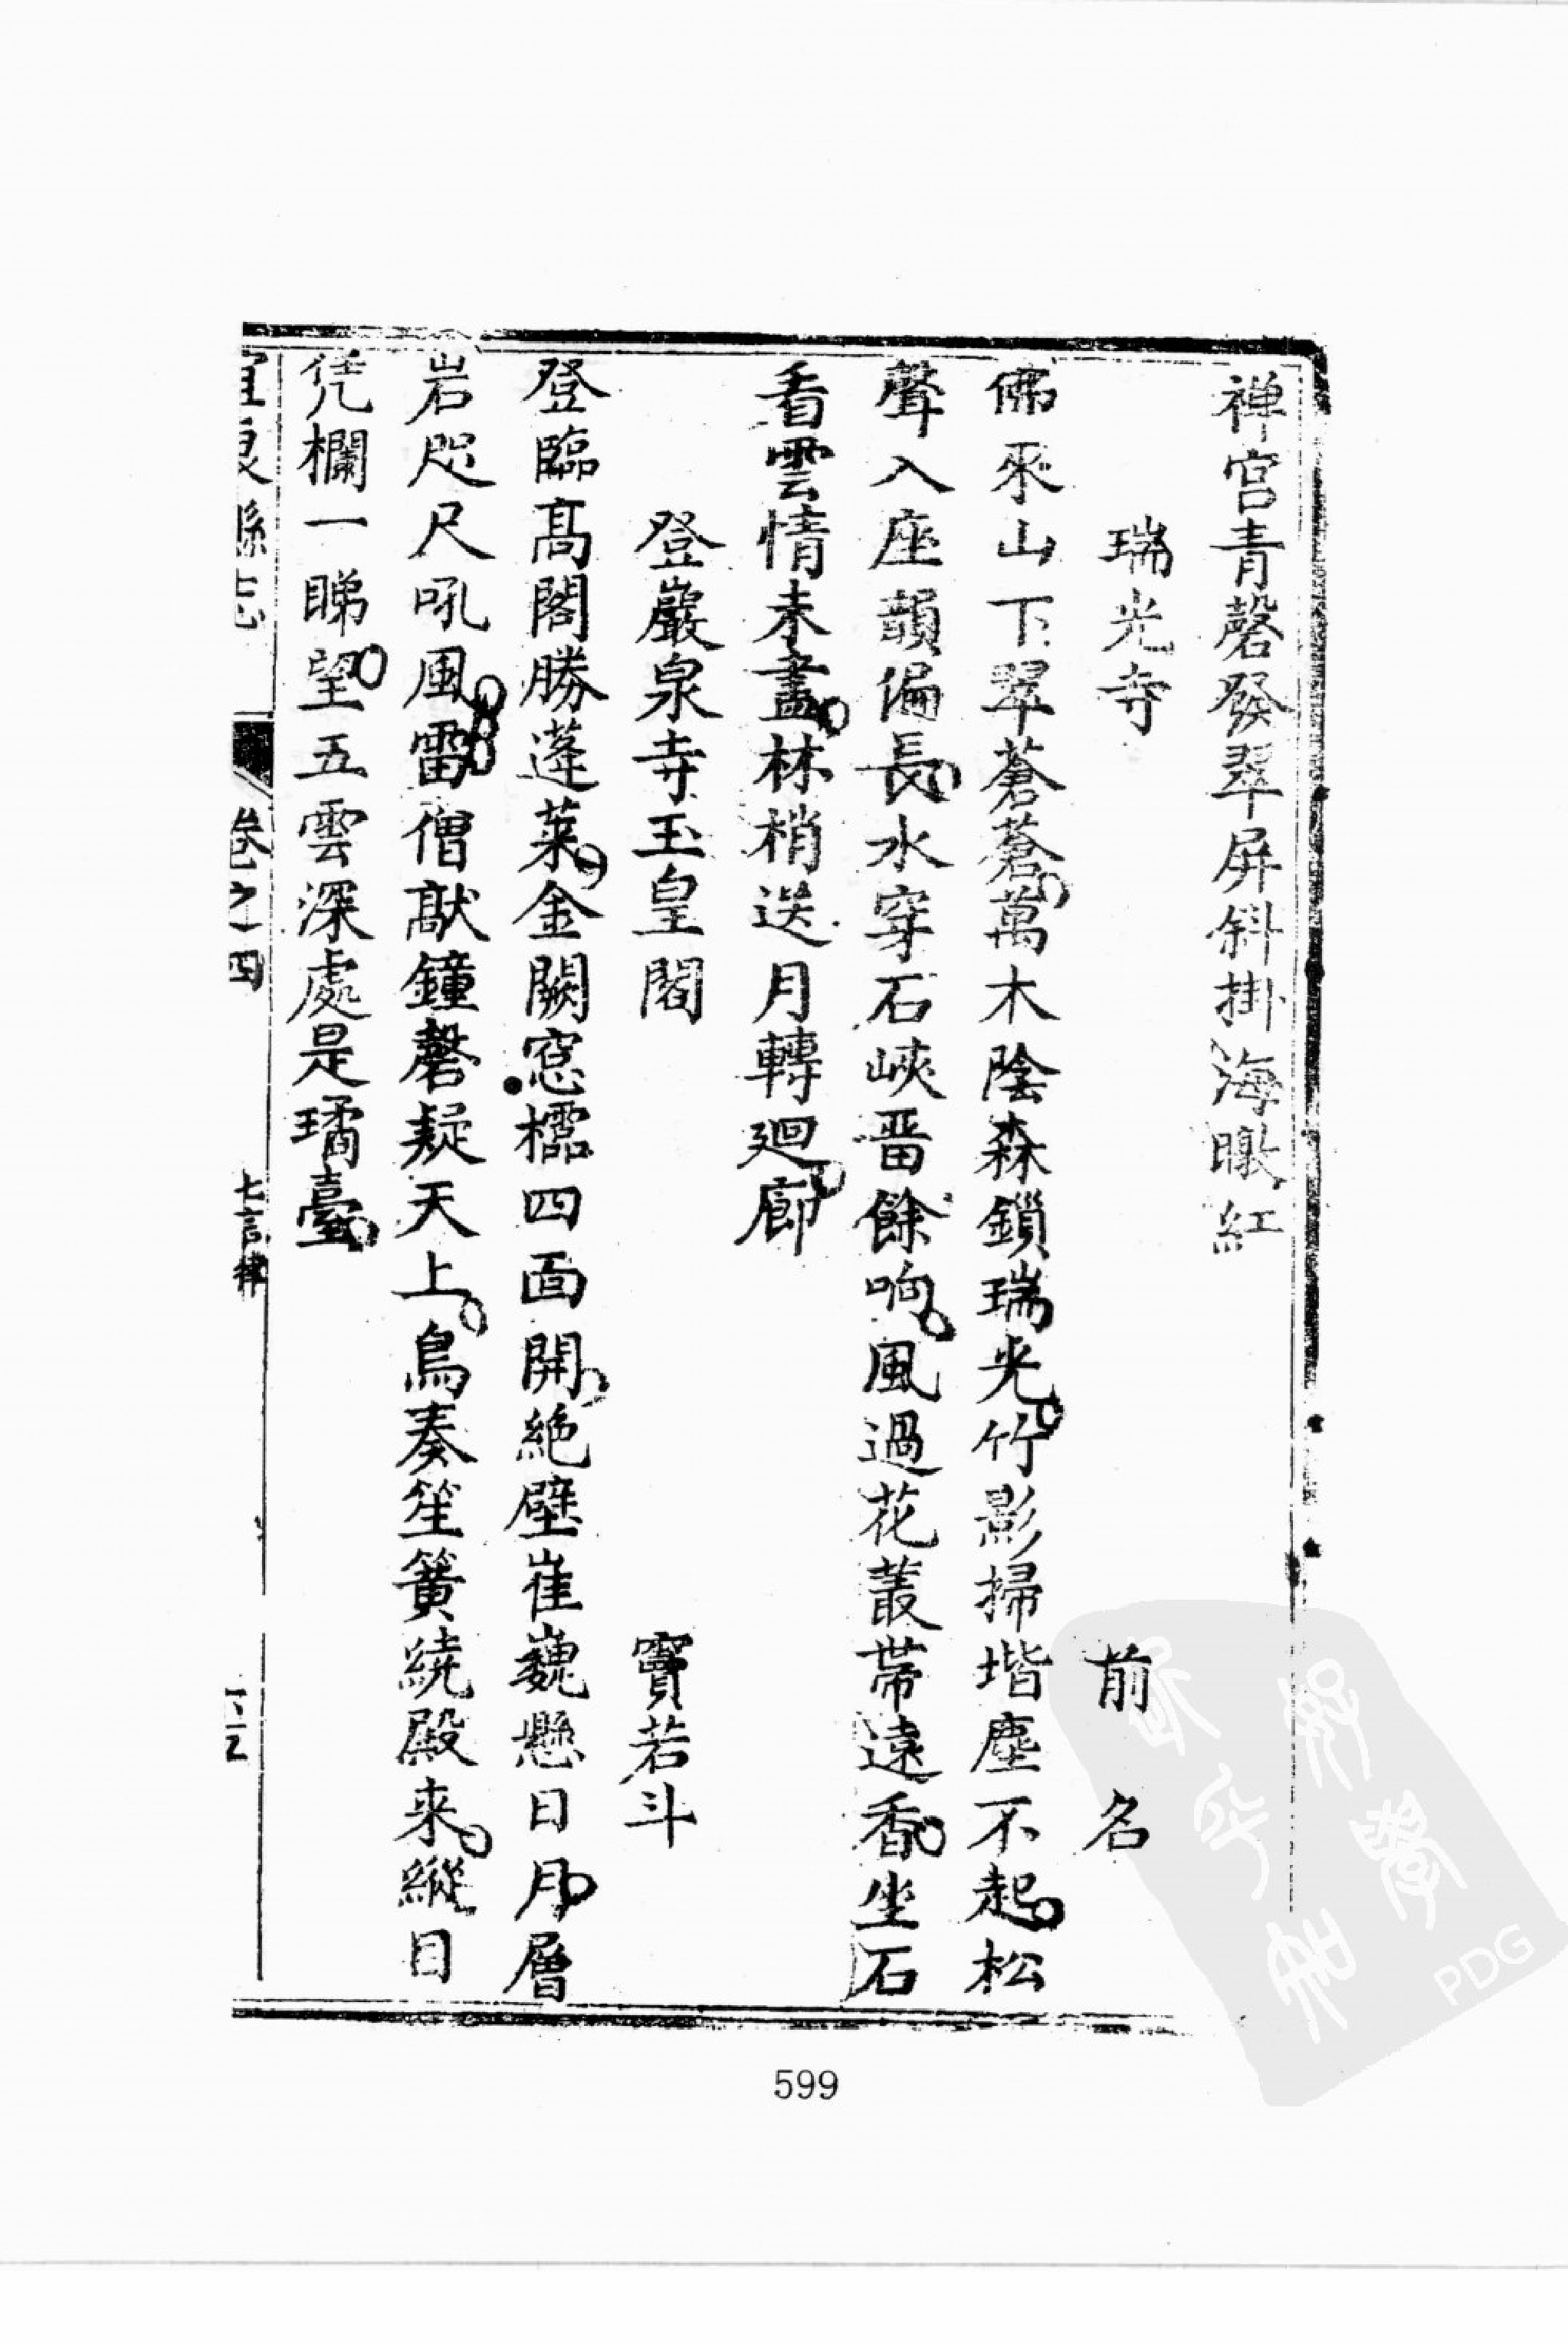 禅宮青磬發翠屏斜掛海暾紅
瑞光寺 前名
佛來山下翠蒼蒼萬木陰森鎖瑞光竹影掃堦塵不起松
聲入座韻偏長水穿石峽畱餘响風過花叢帶遠香坐石
看雲情未盡林梢送月轉廻廊
登巖泉寺玉皇閣 竇若斗
登臨髙閣勝蓬萊金闕窓櫺四面開絶壁崔巍懸日月層
岩咫尺吼風雷僧敲鐘磬疑天上鳥奏笙簧繞殿来縱目
凭欄一睇望五雲深處是璚臺
宜良縣志 卷之四 七言律
599
PDG